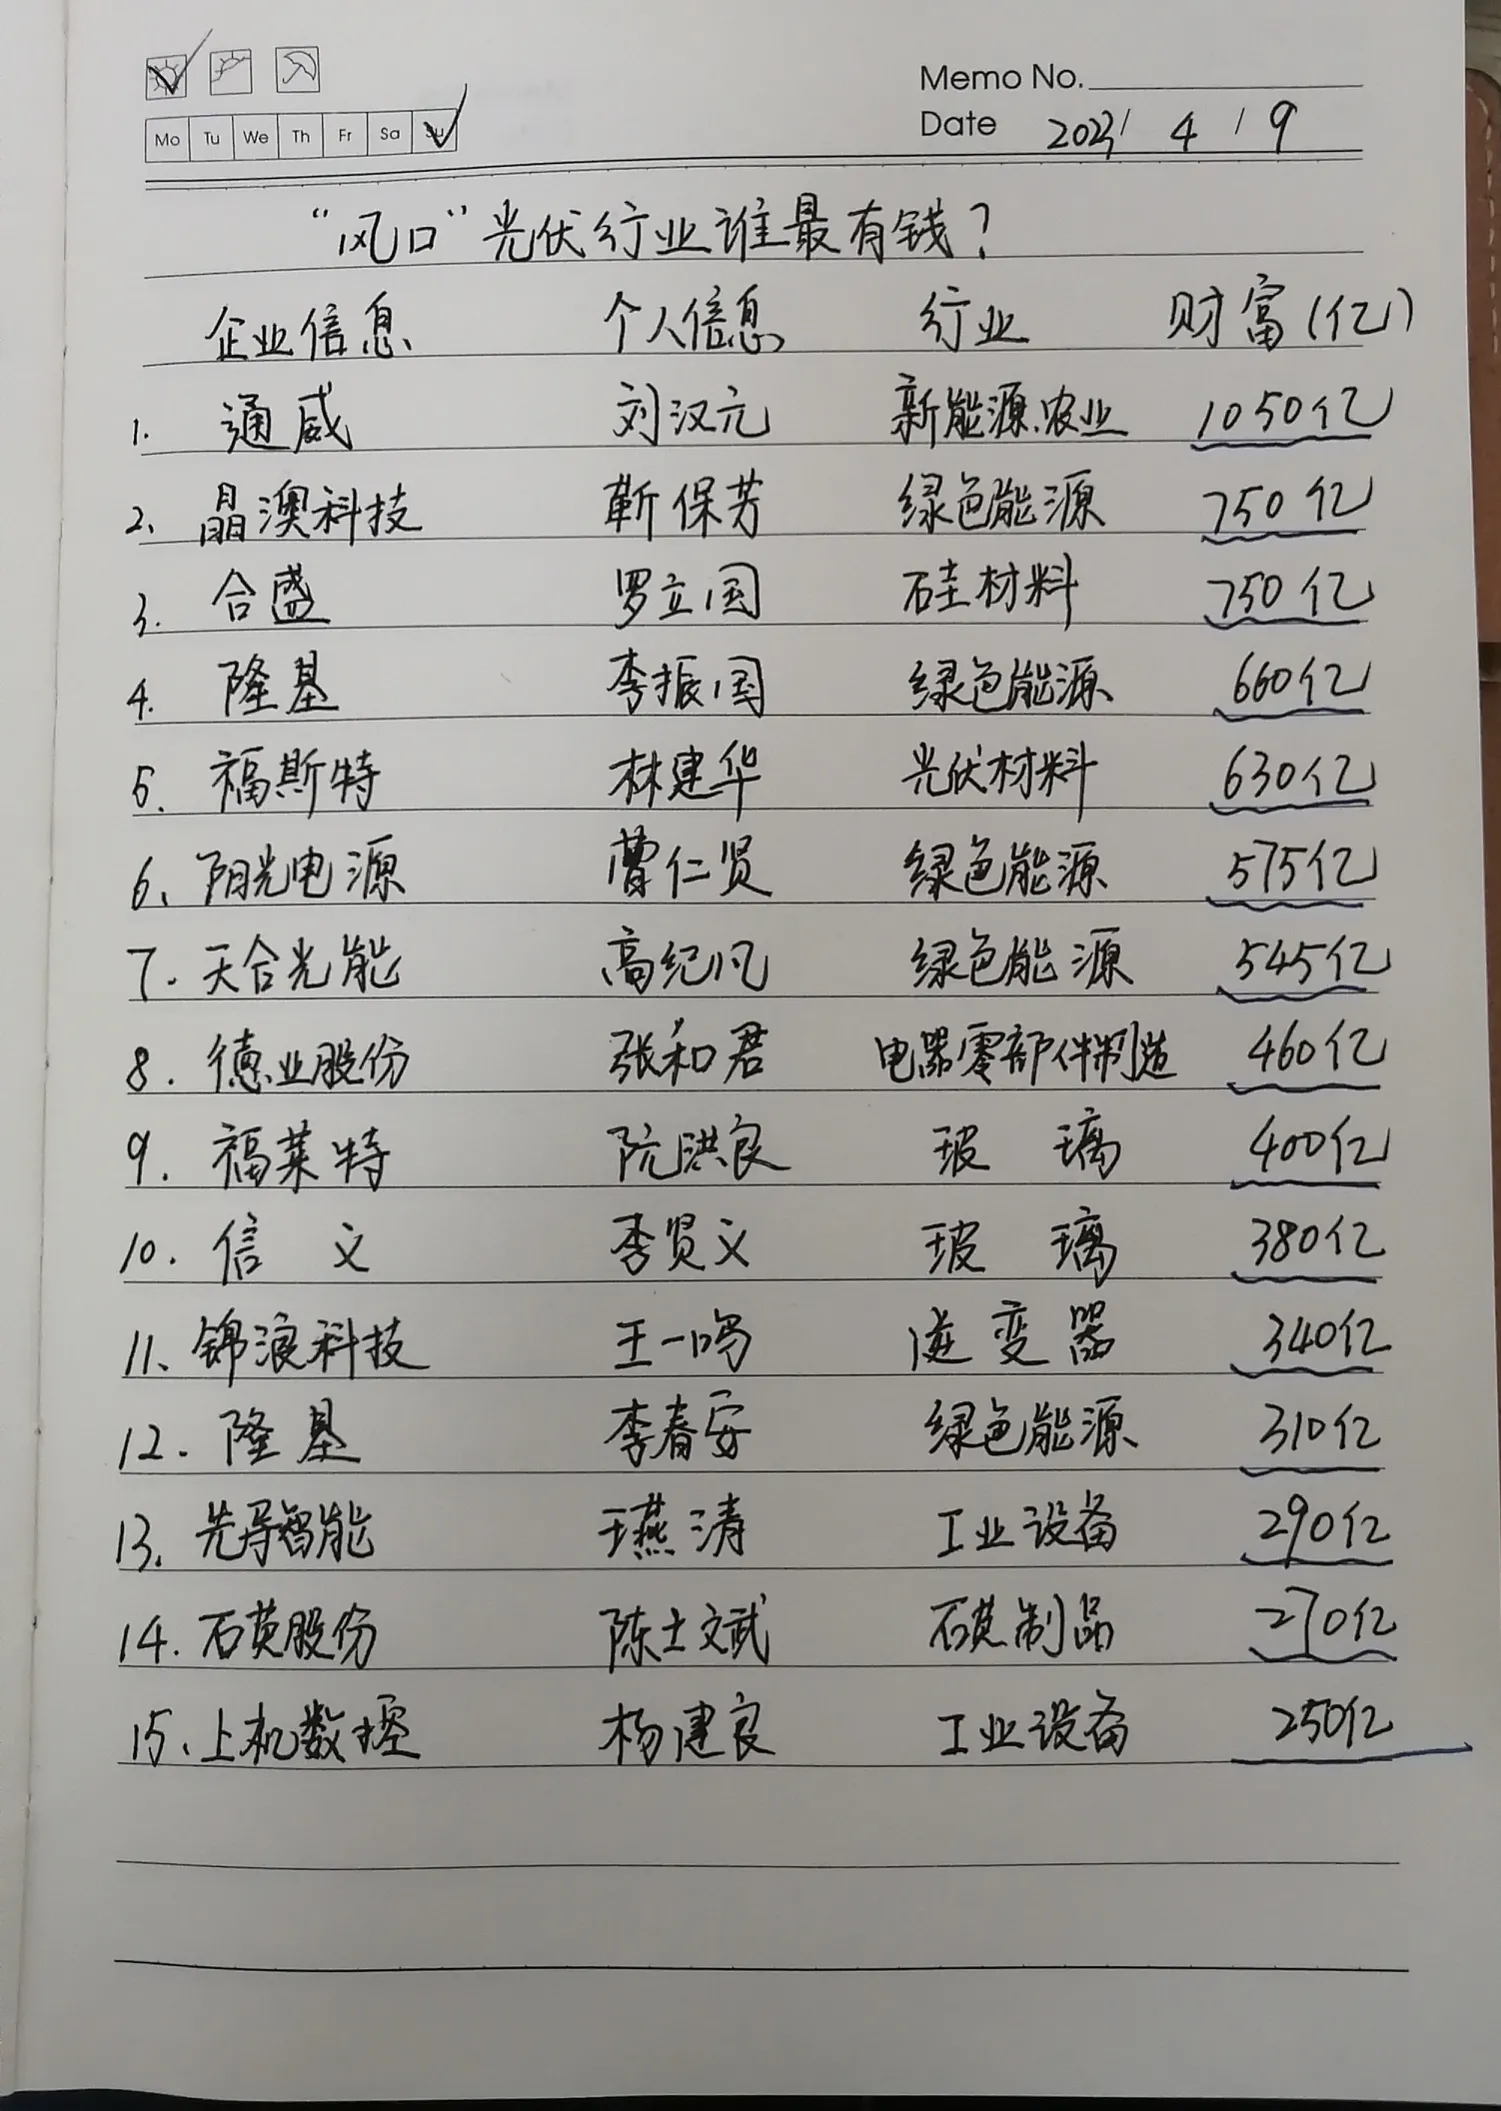 Memo No.
Mo Tu We Th Fr Sa Su
Date 2023/ 4 / 9
“风口”光伏行业谁最有钱？
企业信息 个人信息 行业 财富(亿)
1. 通威 刘汉元 新能源、农业 1050亿
2、晶澳科技 靳保芳 绿色能源 750亿
3. 合盛 罗立国 硅材料 750亿
4. 隆基 李振国 绿色能源 660亿
5. 福斯特 林建华 光伏材料 630亿
6、阳光电源 曹仁贤 绿色能源 575亿
7. 天合光能 高纪凡 绿色能源 545亿
8. 德业股份 张和君 电器零部件制造 460亿
9. 福莱特 阮洪良 玻璃 400亿
10. 信义 李贤义 玻璃 380亿
11、锦浪科技 王一鸣 逆变器 340亿
12. 隆基 李春安 绿色能源 310亿
13. 先导智能 王燕清 工业设备 290亿
14. 石英股份 陈士斌 石英制品 270亿
15、上机数控 杨建良 工业设备 250亿